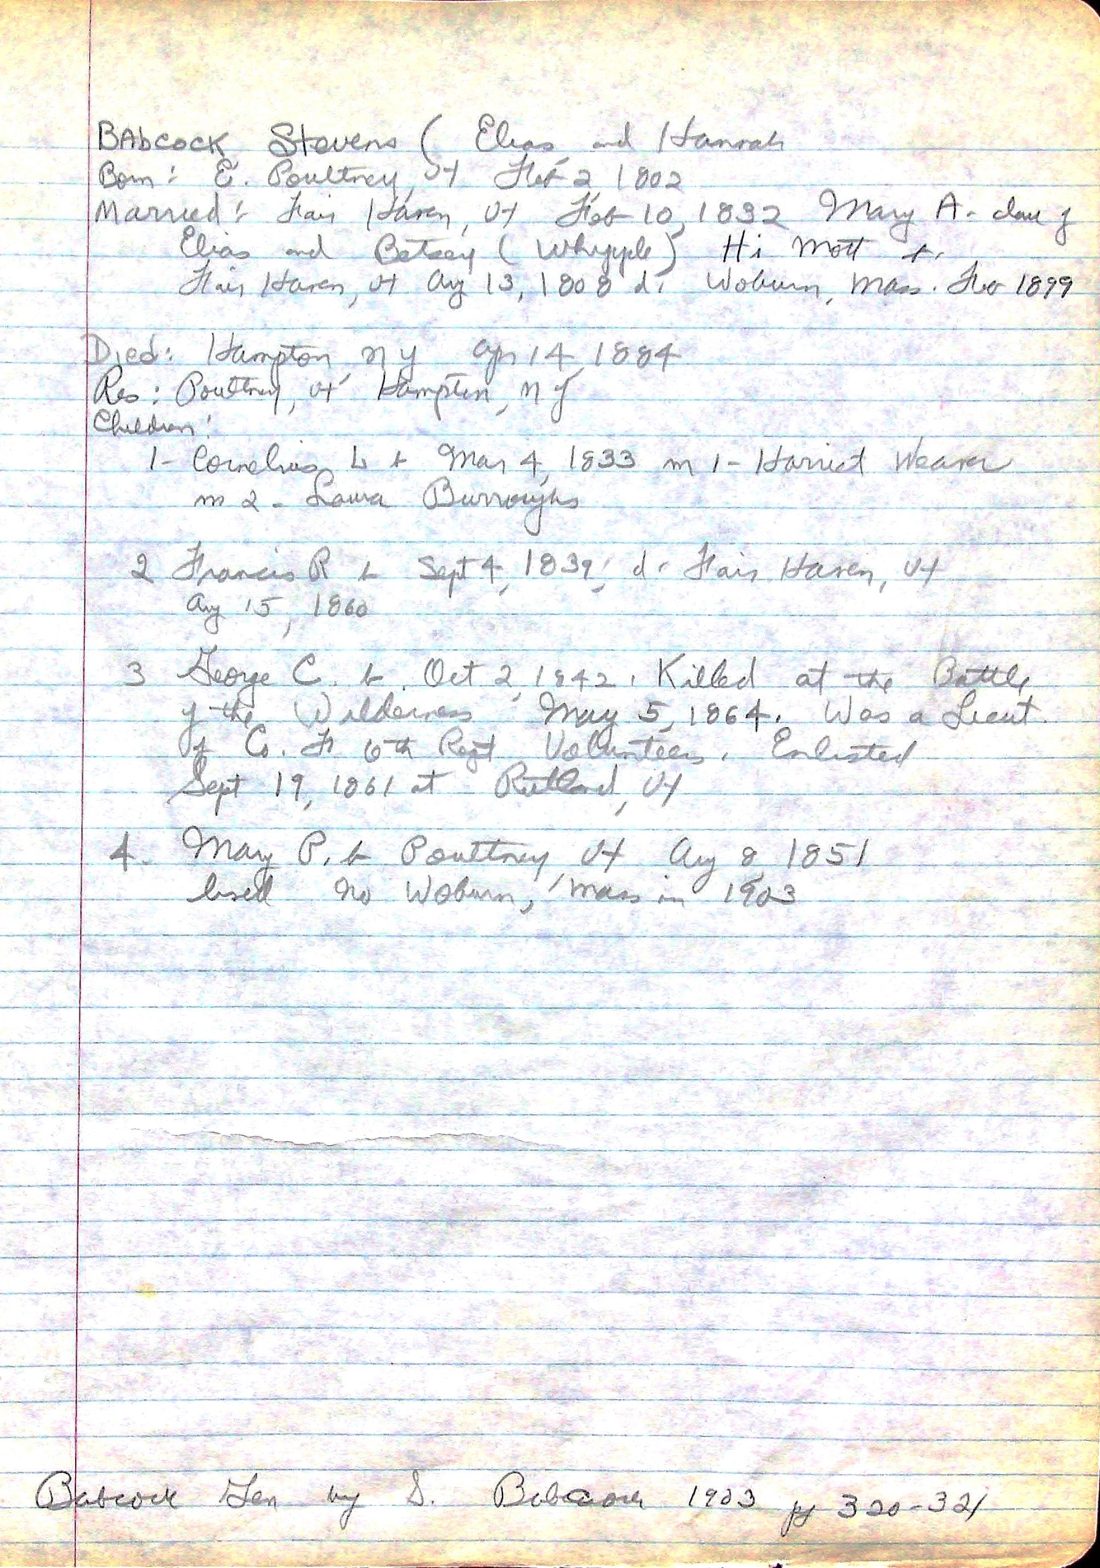 BAbcock Stevens ( Elias and Hannah
Born: E. Poultney, Vt Feb 2, 1802
Married: Fair Haven, Vt Feb 10, 1832 Mary A. dau of
Elias and Betsey (Whipple) Hi Mott b.
Fair Haven, Vt Aug 13, 1808 d. Woburn, Mass. Feb 1899
Died: Hampton, N Y Apr 14, 1884
Res: Poultney, Vt Hampton, N Y
Children:
1- Cornelius L b Mar 4, 1833 m 1- Harriet Weaver
m 2- Laura Burroughs
2 Francis R b Sept 4, 1839, d. Fair Haven, Vt
Aug 15, 1860
3 George C. b. Oct 2, 1842. Killed at the Battle
of the Wilderness May 5, 1864. Was a Lieut.
of Co. F 6th Regt Volunteers. Enlisted
Sept 19, 1861 at Rutland, Vt
4. Mary P. b Poultney, Vt Aug 8 1851
lived No Woburn, Mass in 1903
Babcock Gen by S. Babcock 1903 pg 320-321